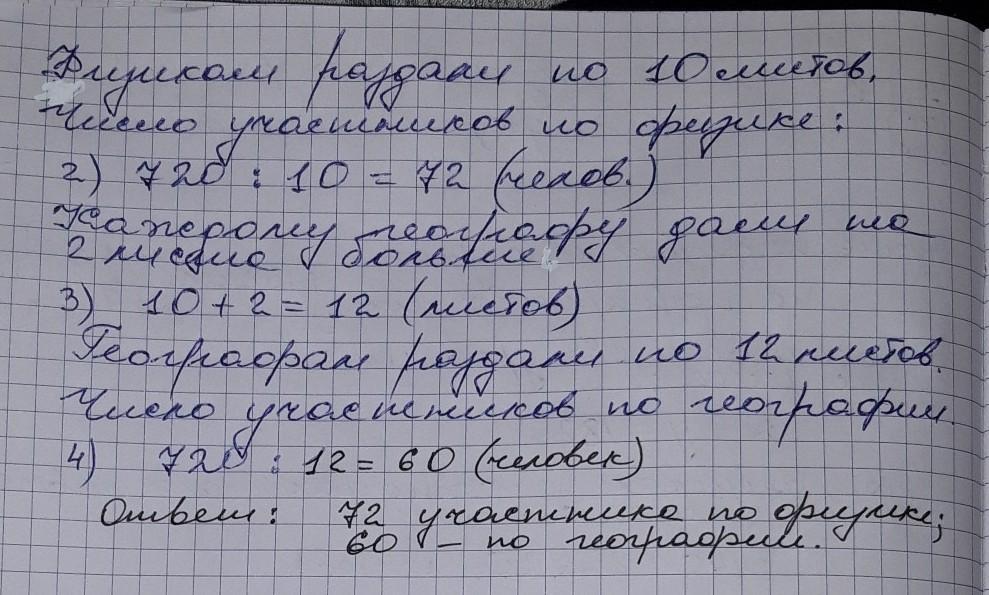 Физикам раздали по 10 листов.
Число участников по физике:
2) 720 : 10 = 72 (челов.)
Каждому географу дали на
2 листа больше
3) 10 + 2 = 12 (листов)
Географам раздали по 12 листов.
Число участников по географии.
4) 720 : 12 = 60 (человек)
Ответ: 72 участника по физике;
60 – по географии.